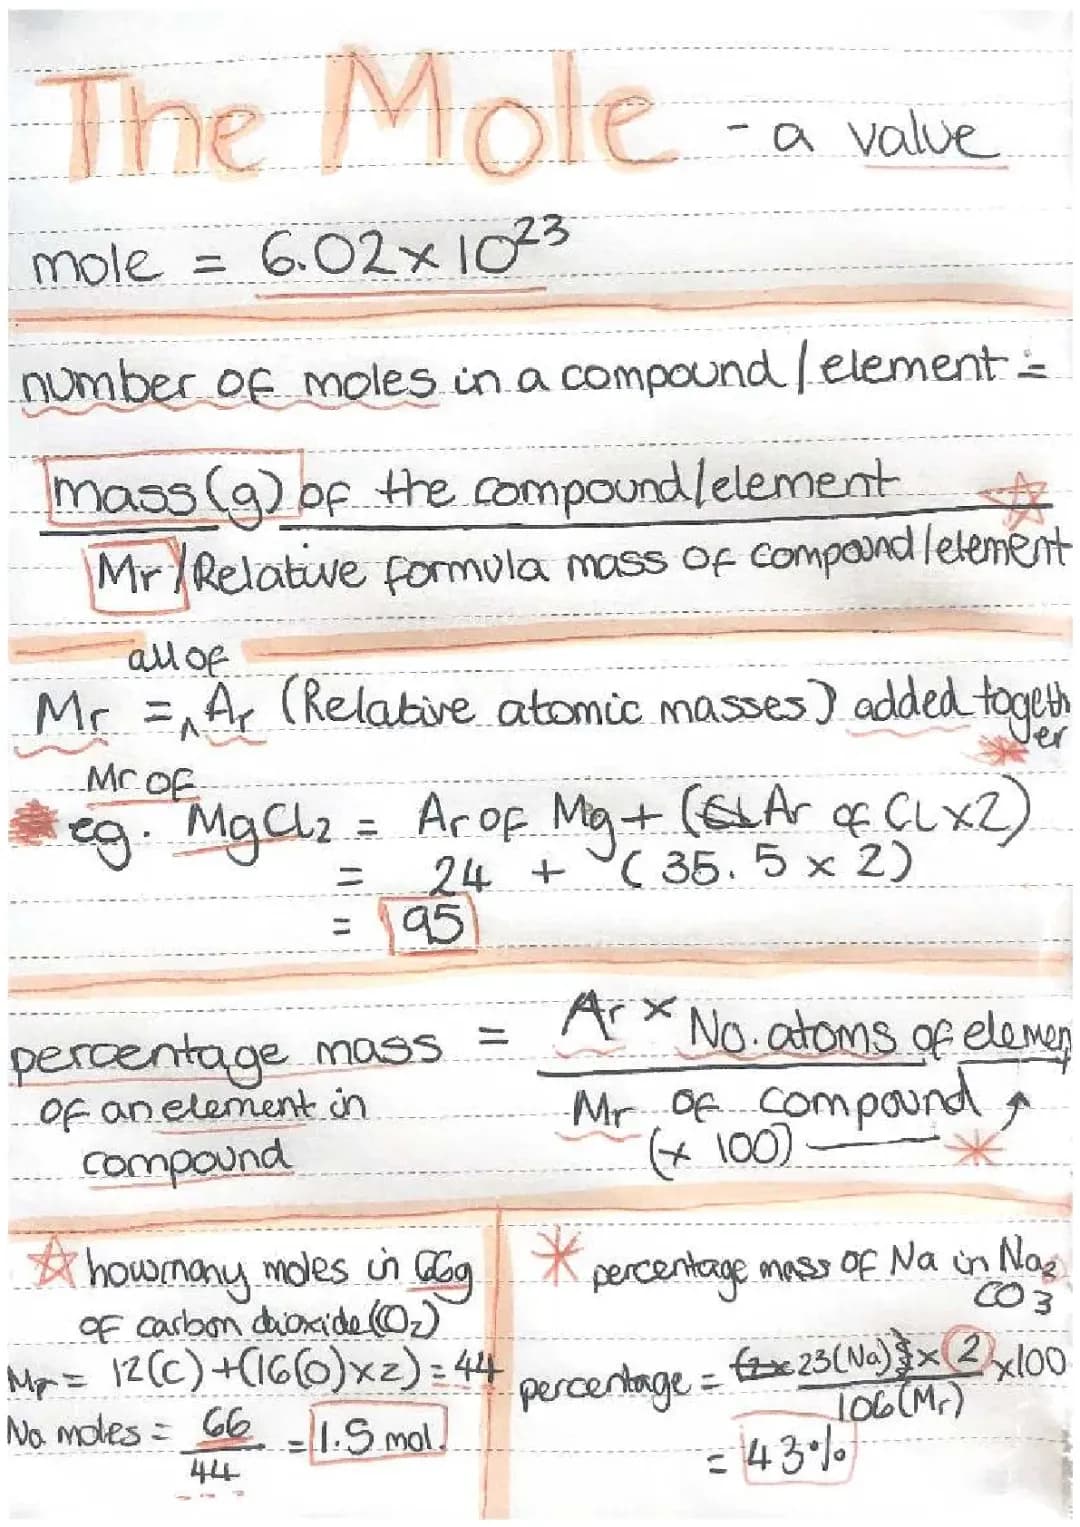 The Mole - a value
mole = 6.02 x 10²³
number of moles in a compound / element =
mass (g) of the compound/element
Mr / Relative formula mass of compound/element
all of
Mr = ^ Ar (Relative atomic masses) added together
Mr of
eg. MgCl₂ = Ar of Mg + (Ar of Cl x 2)
= 24 + (35.5 x 2)
= 95
percentage mass = Ar x No. atoms of elemen
of an element in
compound
Mr of compound
(x 100)
how many moles in 66g
of carbon dioxide (CO₂)
Mr = 12(C) + (16(O) x 2) = 44
No moles = 66
44
= 1.5 mol.
percentage mass of Na in Na₂
CO₃
percentage = 23(Na) x 2 x100
106 (Mr)
= 43%